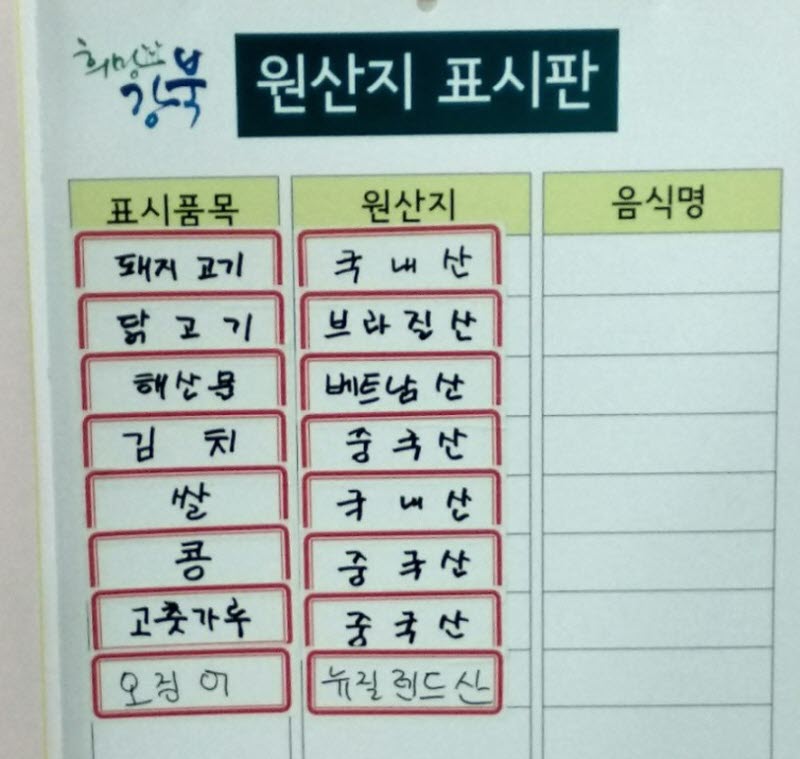 희망 강북
원산지 표시판
표시품목 원산지 음식명
돼지고기 국내산
닭고기 브라질산
해산물 베트남산
김치 중국산
쌀 국내산
콩 중국산
고춧가루 중국산
오징어 뉴질랜드산